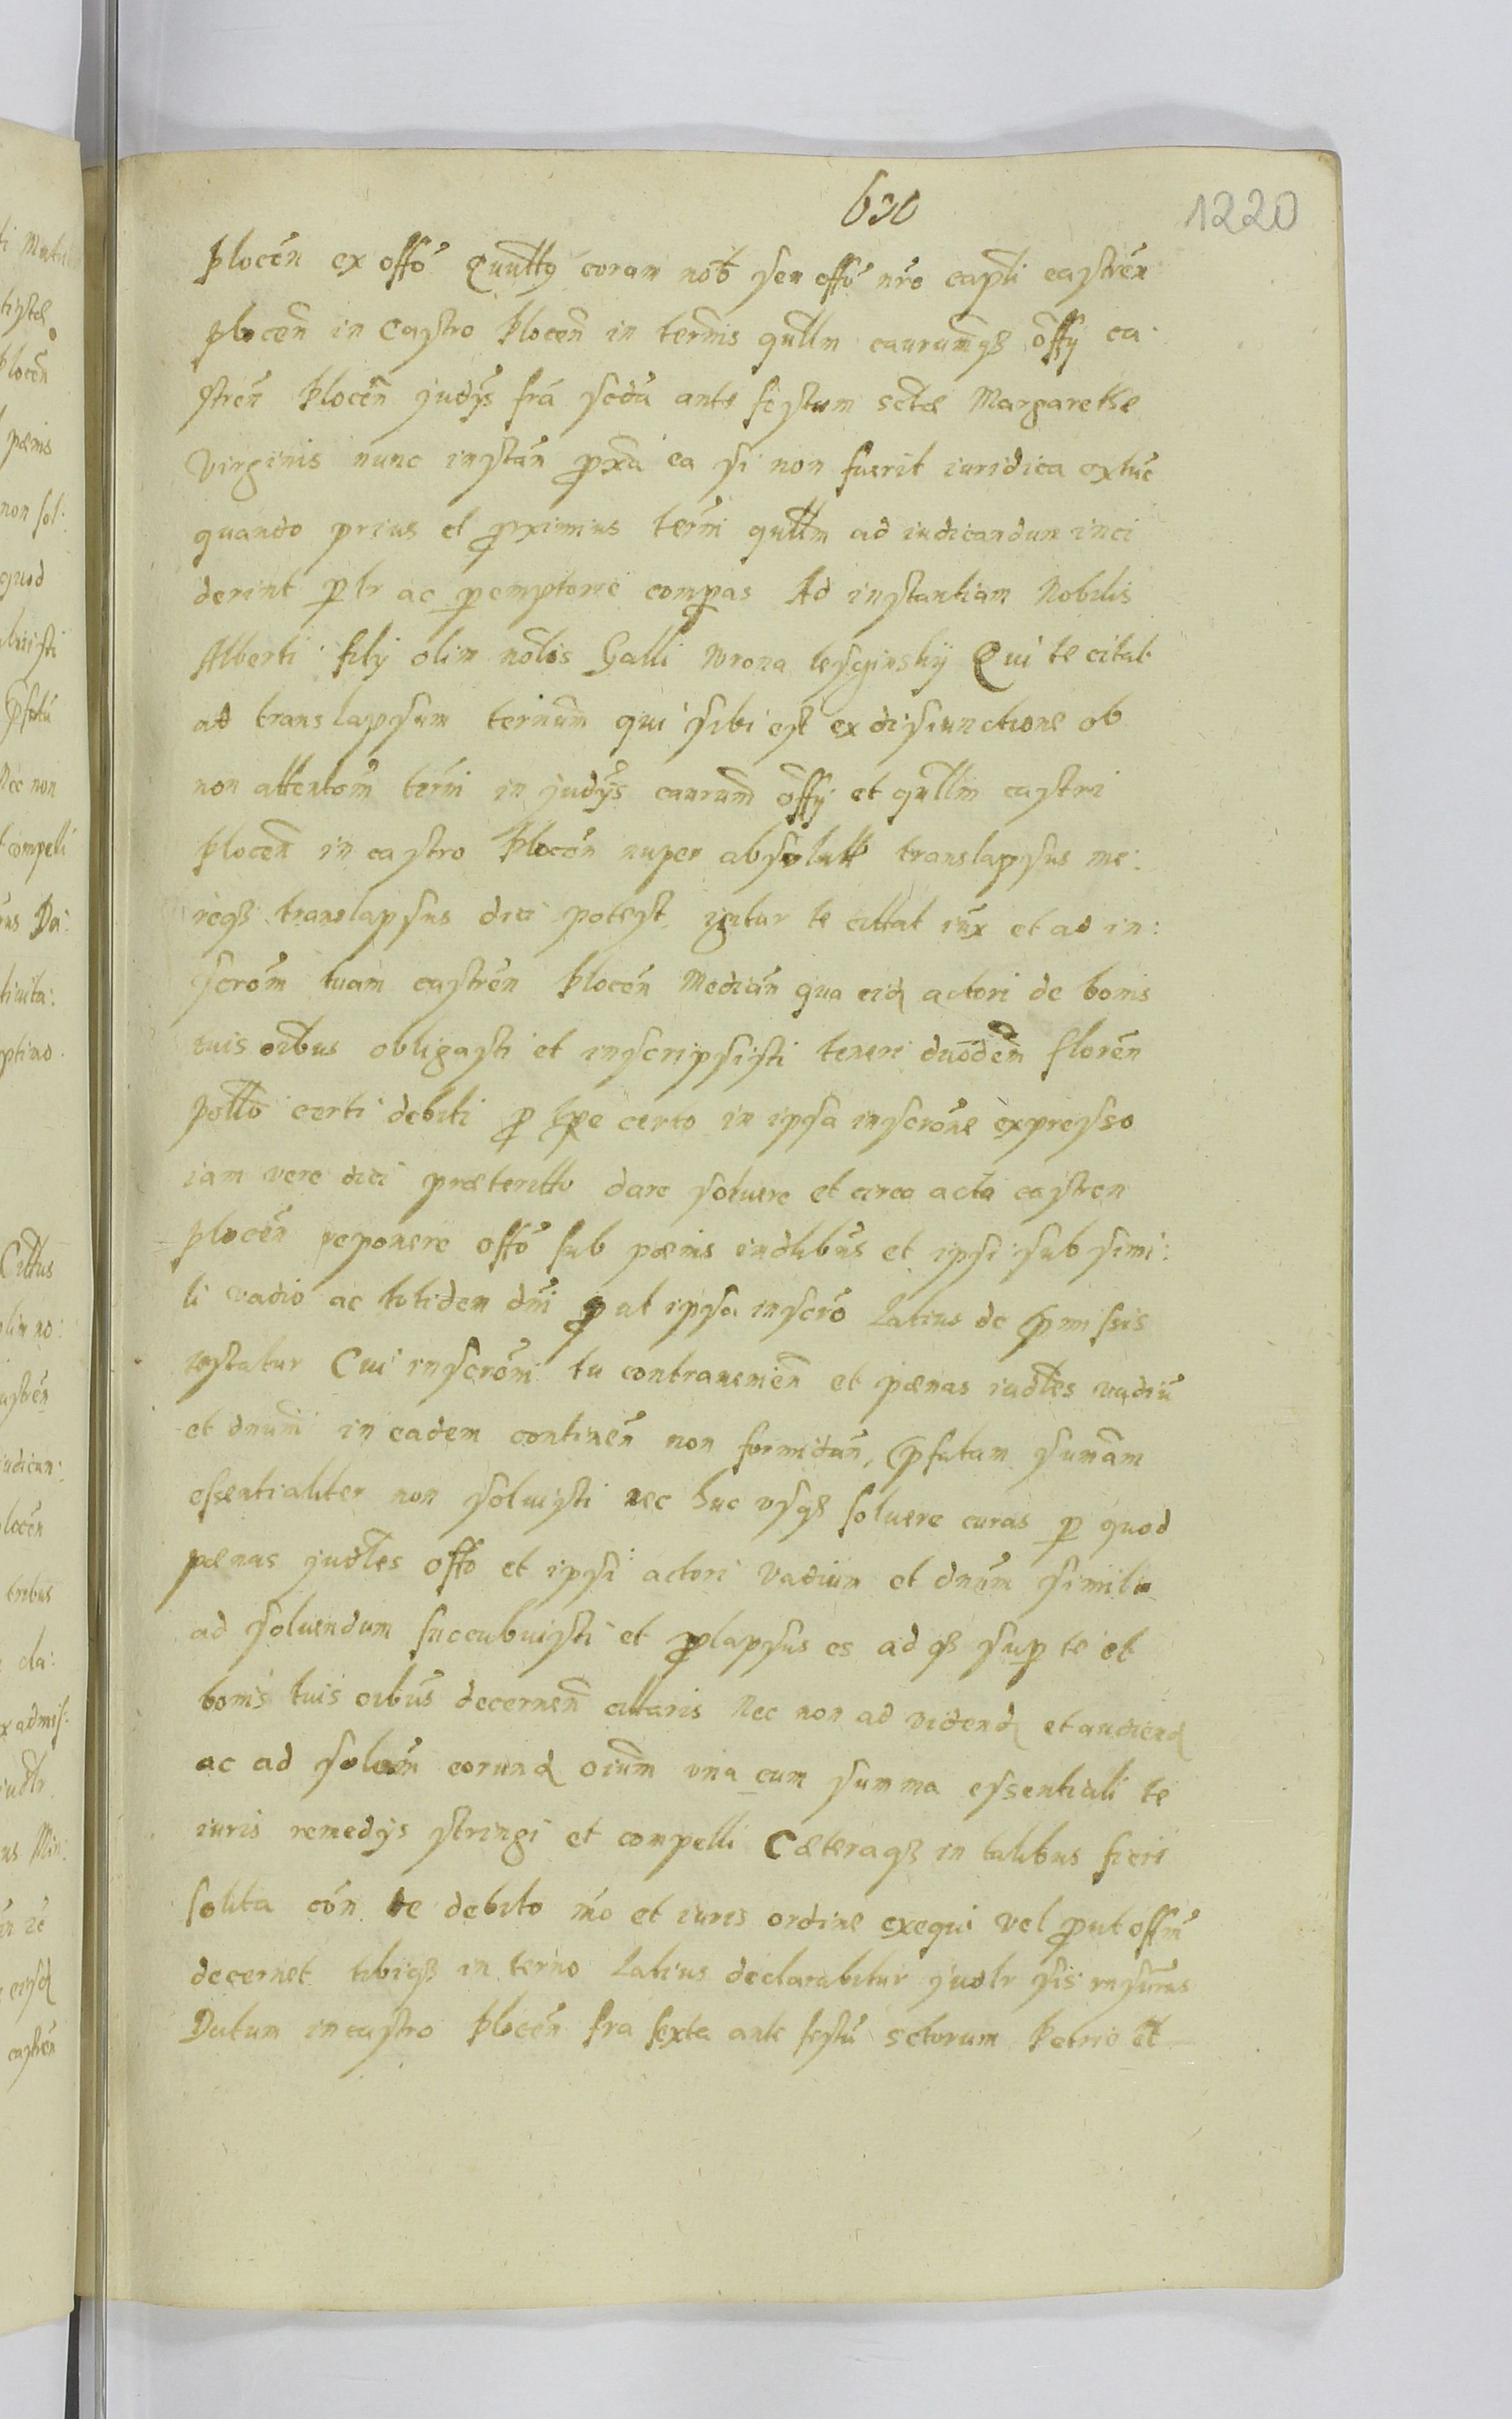 630
1220
plocen̄ ex offō Qunltlȝ coram nob̄ seu offō nr̄o capt̄i castren̄
plocen̄ in Castro Plocen̄ in term̄is qn̄llm caurum̄qȝ off̄ij ca:
stren̄ Plocen̄ judijs fr̄a scda ante festum sctæ Margarethæ
Virginis nunc instan̄ prox̄a ea si non fuerit iuridica extūc
quando prius et proximius term̄i qn̄llm ad iudicandum inci
derint pltr ac peremptorie compas Ad instantiam Nobilis
Alberti filij olim nōlis Galli Wrona Lesginskij Qui te citat
ad translapsum termum̄ qui sibi est ex disiunctione ob
non attentom̄ term̄i in judijs caurum̄ off̄ij et qn̄llm castri
Plocen̄ in castro Plocen̄ nuper absolutt translapsus me:
ritoqȝ translapsus dici potest igitur te cittat iux et ad in:
scrom̄ tuam castren̄ Plocen̄ Median̄ qua eid actori de bonis
tuis oībus obligasti et inscripsisti teneri duōdem̄ floren̄
pollō certi debiti p tpe certo in ipsa inscrōne expresso
iam vere dici præteritto dare soluere et circa acta castren
plocen̄ reponere offō sub pœnis iudlibus et ipsi sub simi:
li vadio ac totidem dn̄i put ipsa inscrō Latius de pmissis
testatur Cui inscrōni tu contrauenien̄ et pœnas iudles vadiū
et dnum̄ in eadem continen̄ non formidan̄, pfatam sum̄am
essentialiter non soluisti nec huc vsqȝ soluere curas p quod
pœnas judles offō et ipsi actori Vadium et dn̄um simile
ad soluendum succubuisti et plapsus es ad qȝ sup te et
bonis tuis oībus decernen̄ cittaris Nec non ad videnđ et audienđ
ac ad solōm eorunđ oīum vna cum summa essentiali te
iuris remedijs stringi et compelli Cæteraqȝ in talibus fieri
solita con̄ te debito mō et iuris ordine exequi vel put offm̄
decernet tibiqȝ in term̄o Latius declarabitur judlr sis respurus
Datum in castro Plocen̄ fr̄a sexta ante festū sctorum Petrie et